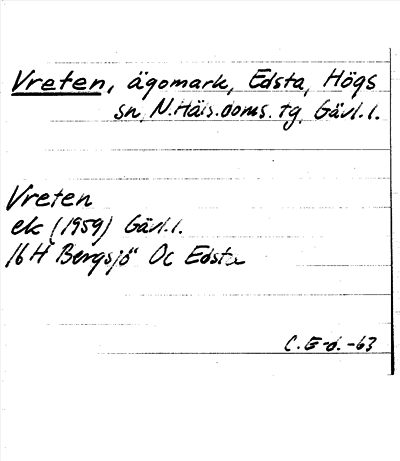 Vreten, ägomark, Edsta, Högs
sn, N.Häls.doms.tg, Gävl.l.
Vreten
ek (1959) Gävl.l.
16H Bergsjö 0c Edsta
C.E-d.-63